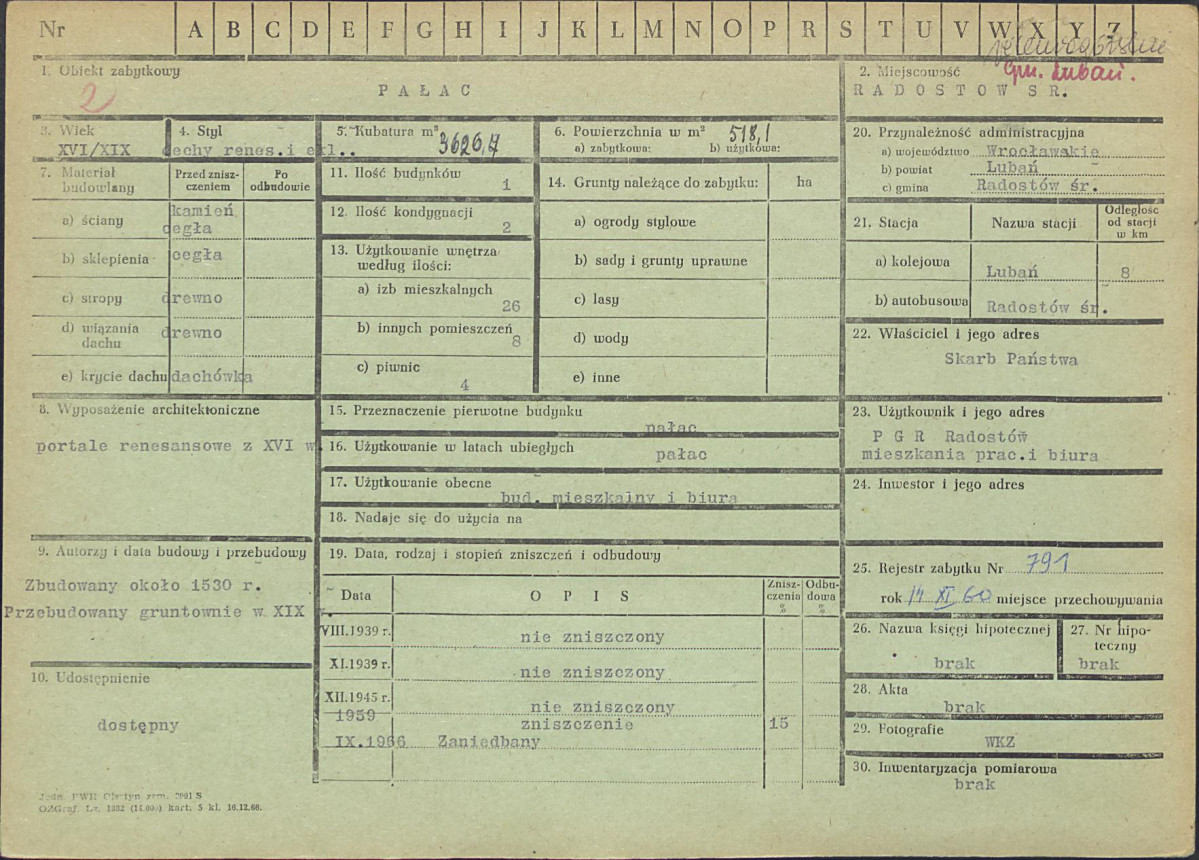 Nr A B C D E F G H I J K L M N O P R S T U V W X Y Z
gm. Lubań.
1. Obiekt zabytkowy
2
PAŁAC
2. Miejscowość
RADOSTOW SR.
3. Wiek
XVI/XIX
4. Styl
cechy renes.i ekl..
5. Kubatura m³
3626,7
6. Powierzchnia w m² 518,1
a) zabytkowa: b) użytkowa:
7. Materiał budowlany
Przed zniszczeniem
Po odbudowie
a) ściany kamień
cegła
b) sklepienia cegła
c) stropy drewno
d) wiązania dachu drewno
e) krycie dachu dachówka
8. Wyposażenie architektoniczne
portale renesansowe z XVI w.
9. Autorzy i data budowy i przebudowy
Zbudowany około 1530 r.
Przebudowany gruntownie w XIX w.
10. Udostępnienie
dostępny
11. Ilość budynków
1
12. Ilość kondygnacji
2
13. Użytkowanie wnętrza według ilości:
a) izb mieszkalnych
26
b) innych pomieszczeń
8
c) piwnic
4
14. Grunty należące do zabytku: ha
a) ogrody stylowe
b) sady i grunty uprawne
c) lasy
d) wody
e) inne
15. Przeznaczenie pierwotne budynku
pałac
16. Użytkowanie w latach ubiegłych
pałac
17. Użytkowanie obecne
bud. mieszkalny i biura
18. Nadaje się do użycia na
19. Data, rodzaj i stopień zniszczeń i odbudowy
Data
OPIS
Zniszczenia %
Odbudowa %
VIII.1939 r. nie zniszczony
XI.1939 r. nie zniszczony
XII.1945 r. nie zniszczony
1959 zniszczenie 15
IX.1966 Zaniedbany
20. Przynależność administracyjna
a) województwo Wrocławskie
b) powiat Lubań
c) gmina Radostów śr.
21. Stacja
Nazwa stacji
Odległość od stacji w km
a) kolejowa Lubań 8
b) autobusowa Radostów śr.
22. Właściciel i jego adres
Skarb Państwa
23. Użytkownik i jego adres
P G R Radostów
mieszkania prac.i biura
24. Inwestor i jego adres
25. Rejestr zabytku Nr 791
rok 14 XI 60 miejsce przechowywania
26. Nazwa księgi hipotecznej
brak
27. Nr hipoteczny
brak
28. Akta
brak
29. Fotografie
WKZ
30. Inwentaryzacja pomiarowa
brak